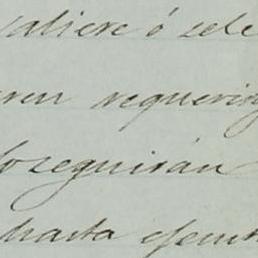 valiere ó sele
ren requerir
proseguirán
hasta ejecut